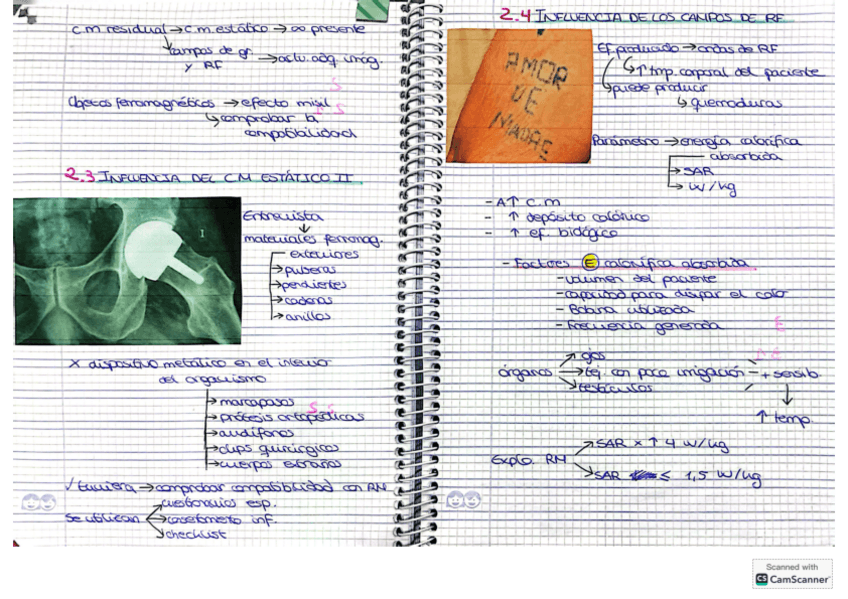 c.m residual → c.m. estático → ∞ presente
↳ campos de gr. y RF → activ. adq. imag.
Objetos ferromagnéticos → efecto misil
↳ comprobar la
compatibilidad
2.3 INFLUENCIA DEL C.M ESTÁTICO II
Entrevista
↓
materiales ferromag.
exteriores
→ pulseras
→ pendientes
→ cadenas
→ anillos
X dispositivo metálico en el interior
del organismo
→ marcapasos
→ prótesis ortopédicas
→ audífonos
→ clips quirúrgicos
→ cuerpos extraños
√ tuviera → comprobar compatibilidad con RM
cuestionarios esp.
Se utilizan → consentimiento inf.
checklist
2.4 INFLUENCIA DE LOS CAMPOS DE RF
AMOR
DE
MADRE
Ef. producido → ondas de RF
↳ ↑ tmp. corporal del paciente
↳ puede producir
↳ quemaduras
Parámetro → energía calorífica
absorbida
→ SAR
→ W/kg
- A ↑ c.m
- ↑ depósito calórico
- ↑ ef. biológico
- Factores E calorífica absorbida
- volumen del paciente
- capacidad para disipar el calor
- Bobina utilizada
- Frecuencia generada
ojos
órganos → tej. con poca irrigación - + sensib.
testículos
↓
↑ temp.
SAR x ↑ 4 W/kg
Explo. RM
SAR ≤ 1,5 W/kg
Scanned with
CS CamScanner